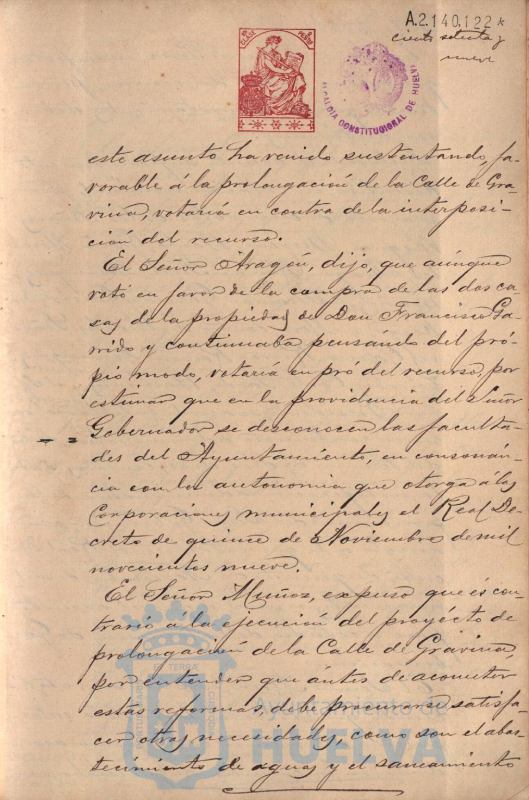 A.2.140.122*
ciento setenta y
nueve
ALCALDIA CONSTITUCIONAL DE HUELVA
este asunto ha venido sustentando, fa-
vorable á la prolongación de la Calle de Gra-
vina, votaría en contra de la interposi-
ción del recurso.
El Señor Aragón, dijo, que aúnque
votó en favor de la compra de las dos ca-
sas de la propiedad de Don Francisco Ga-
rrido y continuaba pensando del pró-
pio modo, votaría en pró del recurso, por
estimar que en la providencia del Señor
Gobernador se desconocen las faculta-
des del Ayuntamiento, en consonán-
cia con la autonomia que otorga á las
Corporaciones municipales el Real De-
creto de quince de Noviembre de mil
novecientos nueve.
El Señor Muñoz, expuso que és con-
trario á la ejecución del proyécto de
prolongación de la Calle de Gravina,
por entender que ántes de acometer
estas reformas, debe procurarse satisfa-
cer otras necesidades, como son el abas-
tecimiento de aguas y el saneamiento
Ayuntamiento de
HUELVA